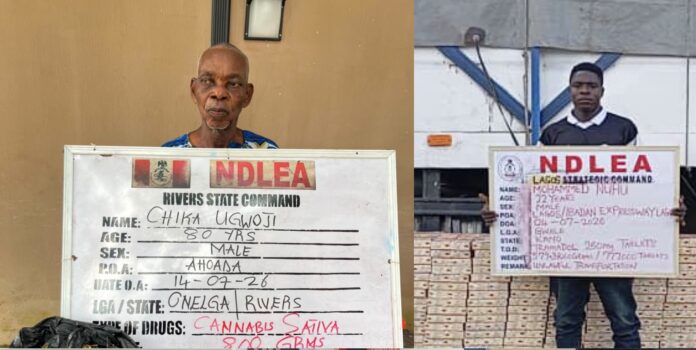 NDLEA
RIVERS STATE COMMAND
NAME: CHIKA UGWOJI
AGE: 80 YRS
SEX: MALE
P.O.A: AHOADA
DATE O.A: 14-07-26
LGA / STATE: ONELGA / RIVERS
TYPE OF DRUGS: CANNABIS SATIVA
800 GRMS
NDLEA
LAGOS STRATEGIC COMMAND
NAME: MOHAMMED NUHU
AGE: 22 YEARS
SEX: MALE
POA: LAGOS/IBADAN EXPRESSWAY LAGOS
DOA: 04-07-2026
L.G.A: GWALE
STATE: KANO
T.O.D: TRAMADOL 250mg TABLETS
WEIGHT: 777000 TABLETS
REMARK: UNLAWFUL TRANSPORTATION